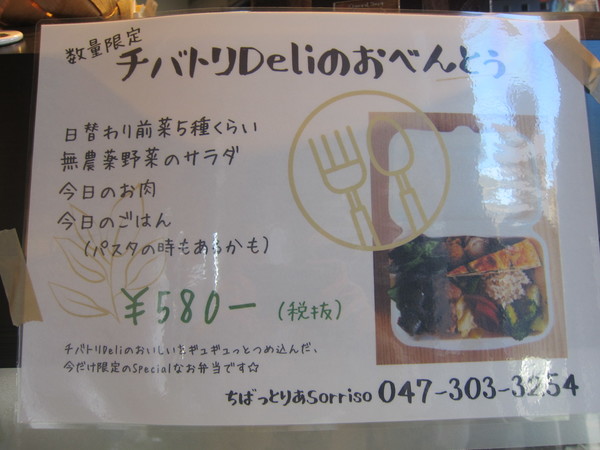 数量限定
チバトリDeliのおべんとぅ
日替わり前菜5種くらい
無農薬野菜のサラダ
今日のお肉
今日のごはん
(パスタの時もあるかも)
¥580ー (税抜)
チバトリDeliのおいしいをギュギュっとつめ込んだ、
今だけ限定のSpecialなお弁当です☆
ちばっとりあSorriso 047-303-3254